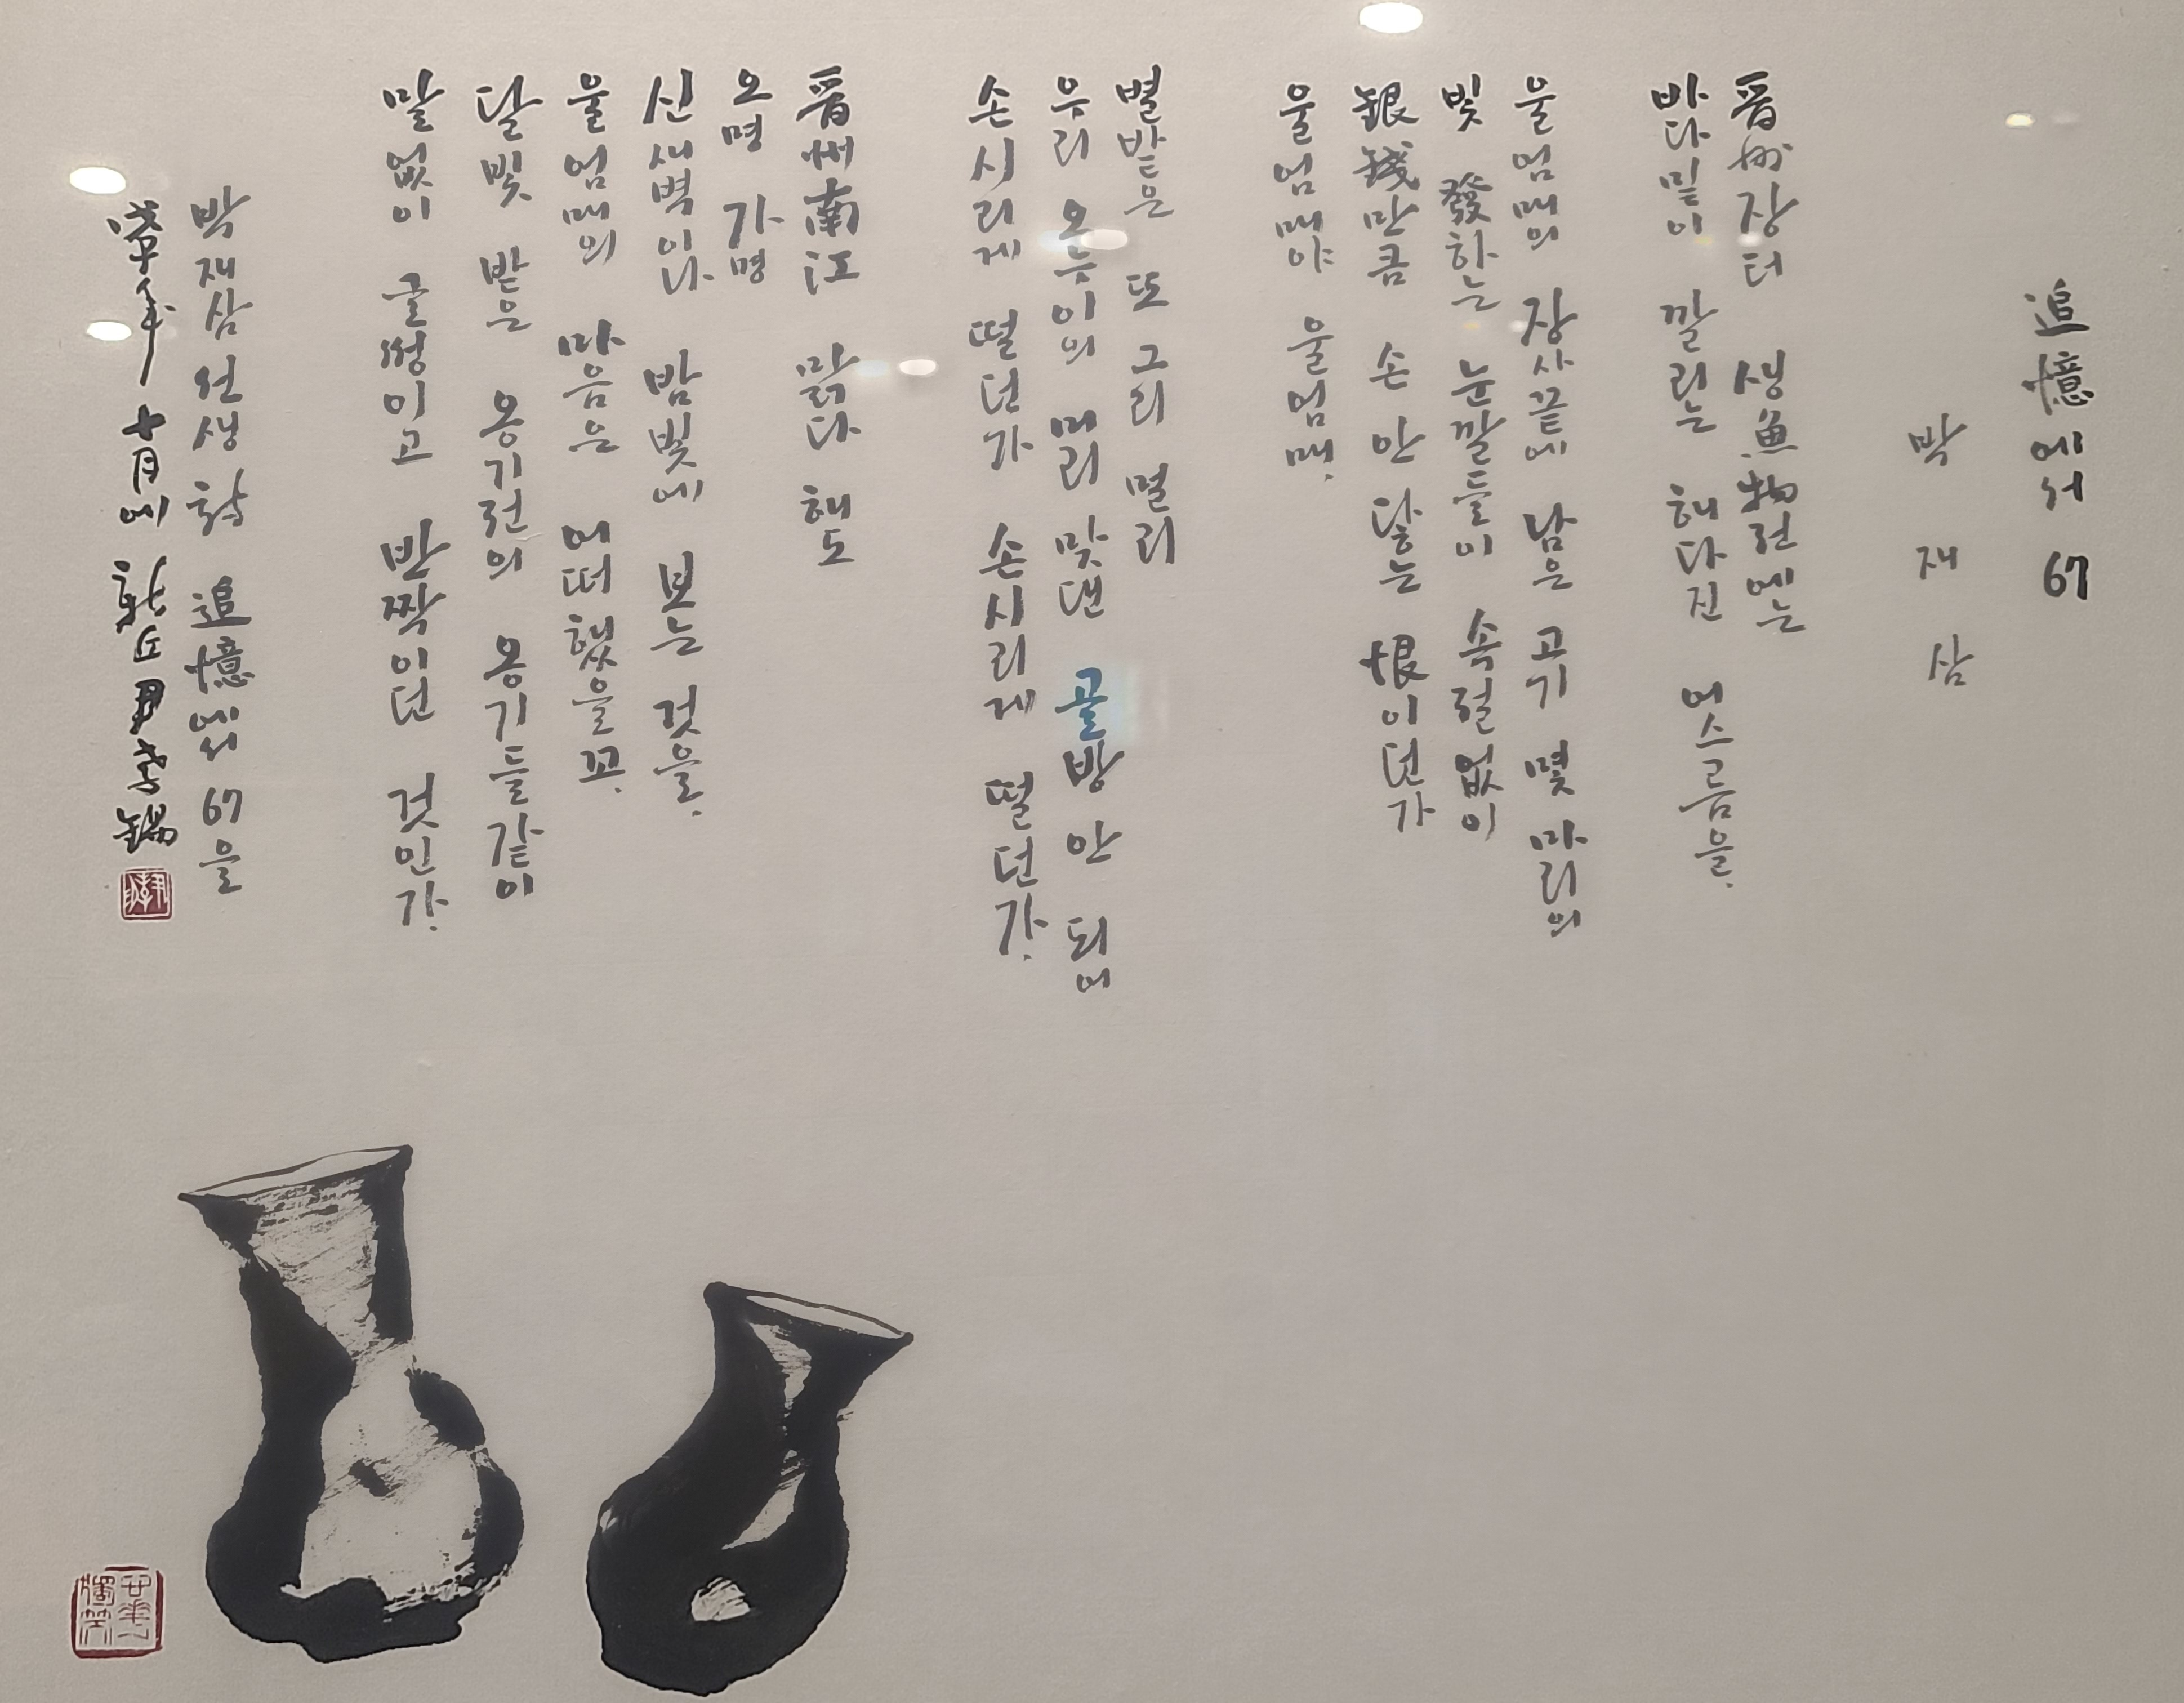 追憶에서 67
박 재 삼
晋州장터 생魚物전에는
바다밑이 깔리는 해다진 어스름을.
울엄매의 장사끝에 남은 고기 몇 마리의
빛 發하는 눈깔들이 속절없이
銀錢만큼 손 안 닿는 恨이던가
울엄매야 울엄매.
별밭은 또 그리 멀리
우리 오누이의 머리 맞댄 골방 안 되어
손시리게 떨던가 손시리게 떨던가.
晋州南江 맑다 해도
오명 가명
신새벽이나 밤빛에 보는 것을.
울엄매의 마음은 어떠했을꼬.
달빛 받은 옹기전의 옹기들같이
말없이 글썽이고 반짝이던 것인가.
박재삼 선생 詩 追憶에서 67을
年 十月에 丘 尹孝錫